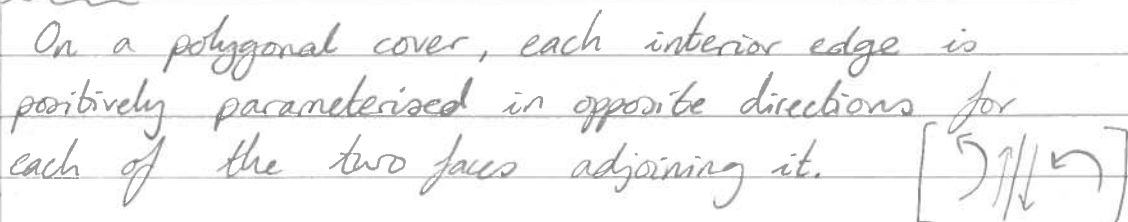 On a polygonal cover, each interior edge is
positively parameterised in opposite directions for
each of the two faces adjoining it.